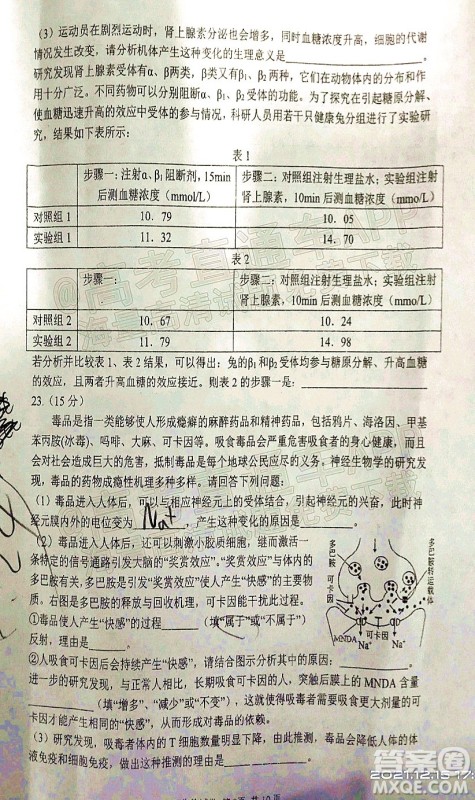 （3）运动员在剧烈运动时，肾上腺素分泌也会增多，同时血糖浓度升高，细胞的代谢
情况发生改变，请分析机体产生这种变化的生理意义是____________。
研究发现肾上腺素受体有α、β两类，β类又有β₁、β₂两种，它们在动物体内的分布和作
用十分广泛。不同药物可以分别阻断α、β₁、β₂受体的功能。为了探究在引起糖原分解、
使血糖迅速升高的效应中受体的参与情况，科研人员用若干只健康兔分组进行了实验研
究，结果如下表所示：
表1
步骤一：注射α、β₁阻断剂，15min后测血糖浓度（mmol/L） 步骤二：对照组注射生理盐水；实验组注射肾上腺素，10min后测血糖浓度（mmol/L）
对照组1 10．79 10．05
实验组1 11．32 14．70
表2
步骤一： 步骤二：对照组注射生理盐水；实验组注射肾上腺素，10min后测血糖浓度（mmol/L）
对照组2 10．67 10．24
实验组2 11．79 14．98
若分析并比较表1、表2结果，可以得出：兔的β₁和β₂受体均参与糖原分解、升高血糖
的效应，且两者升高血糖的效应接近。则表2的步骤一是：____________
23.（15分）
毒品是指一类能够使人形成瘾癖的麻醉药品和精神药品，包括鸦片、海洛因、甲基
苯丙胺(冰毒)、吗啡、大麻、可卡因等。吸食毒品会严重危害吸食者的身心健康，而且
会对社会造成巨大的危害，抵制毒品是每个地球公民应尽的义务。神经生物学的研究发
现，毒品的药物成瘾性机理多种多样。请回答下列问题：
（1）毒品进入人体后，可以与相应神经元上的受体结合，引起神经元的兴奋，此时神
经元膜内外的电位变为 Na⁺ ，产生这种变化的原因是____________。
（2）毒品进入人体后，还可以刺激小胶质细胞，通过
一条特定的信号通路引发大脑的“奖赏效应”。“奖赏效应”与体内
的多巴胺有关，多巴胺是引发“奖赏效应”使人产生“快感”的主要物
质。右图是多巴胺的释放与回收机理，可卡因能干扰此过程。
①毒品使人产生“快感”的过程______（填“属于”或“不属于”）
反射，理由是____________。
多巴胺
可卡因
多巴胺转运载体
MNDA
可卡因
Na⁺
Na⁺
②人吸食可卡因后会持续产生“快感”，请结合图示分析其中的原因：____________。
进一步的研究发现，与正常人相比，长期吸食可卡因的人，突触后膜上的MNDA含量
______（填“增多”、“减少”或“不变”），这就使得吸毒者需要吸食更大剂量的可
卡因才能产生上述“快感”，从而形成对毒品的依赖。
（3）研究发现，吸毒者体内的T细胞数量明显下降，由此推测，毒品会降低人体的体
液免疫和细胞免疫，做出这种推测的理由是____________。
@高考直通车APP
答案圈
2021.12.15